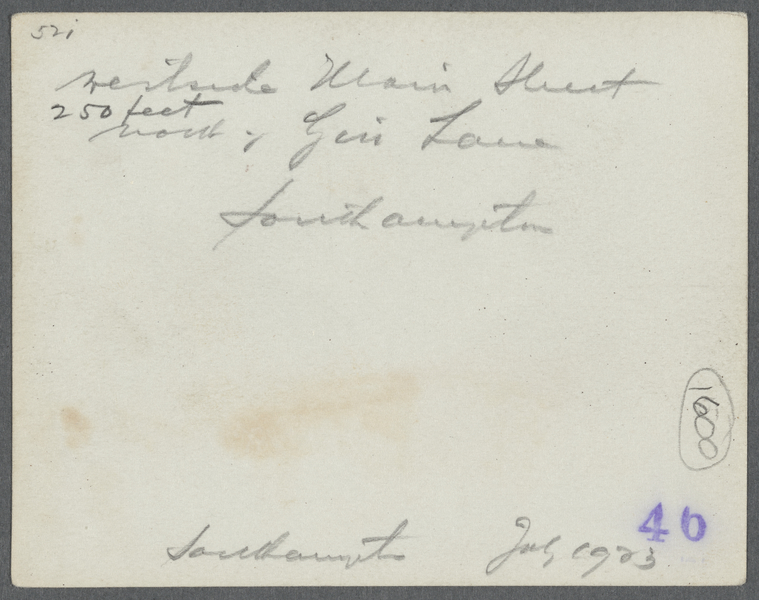 52i
Westside Main Street
250 feet
north of Gin Lane
Southampton
1600
46
Southampton July 1923